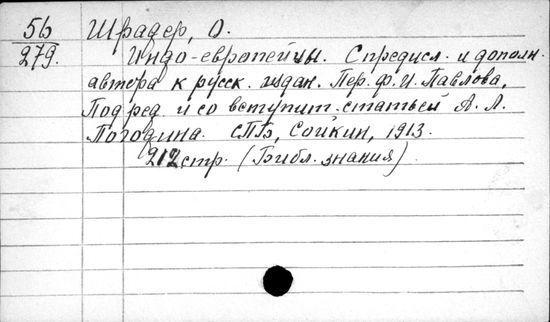 56 Шрадер, О.
279. Индо-европейцы. С предисл. и дополн.
автора к русск. издан. Пер. Ф. И. Павлова,
Под ред. и со вступит. статьей А. Л.
Погодина. СПБ, Сойкин, 1913.
212 стр. (Библ. знания)